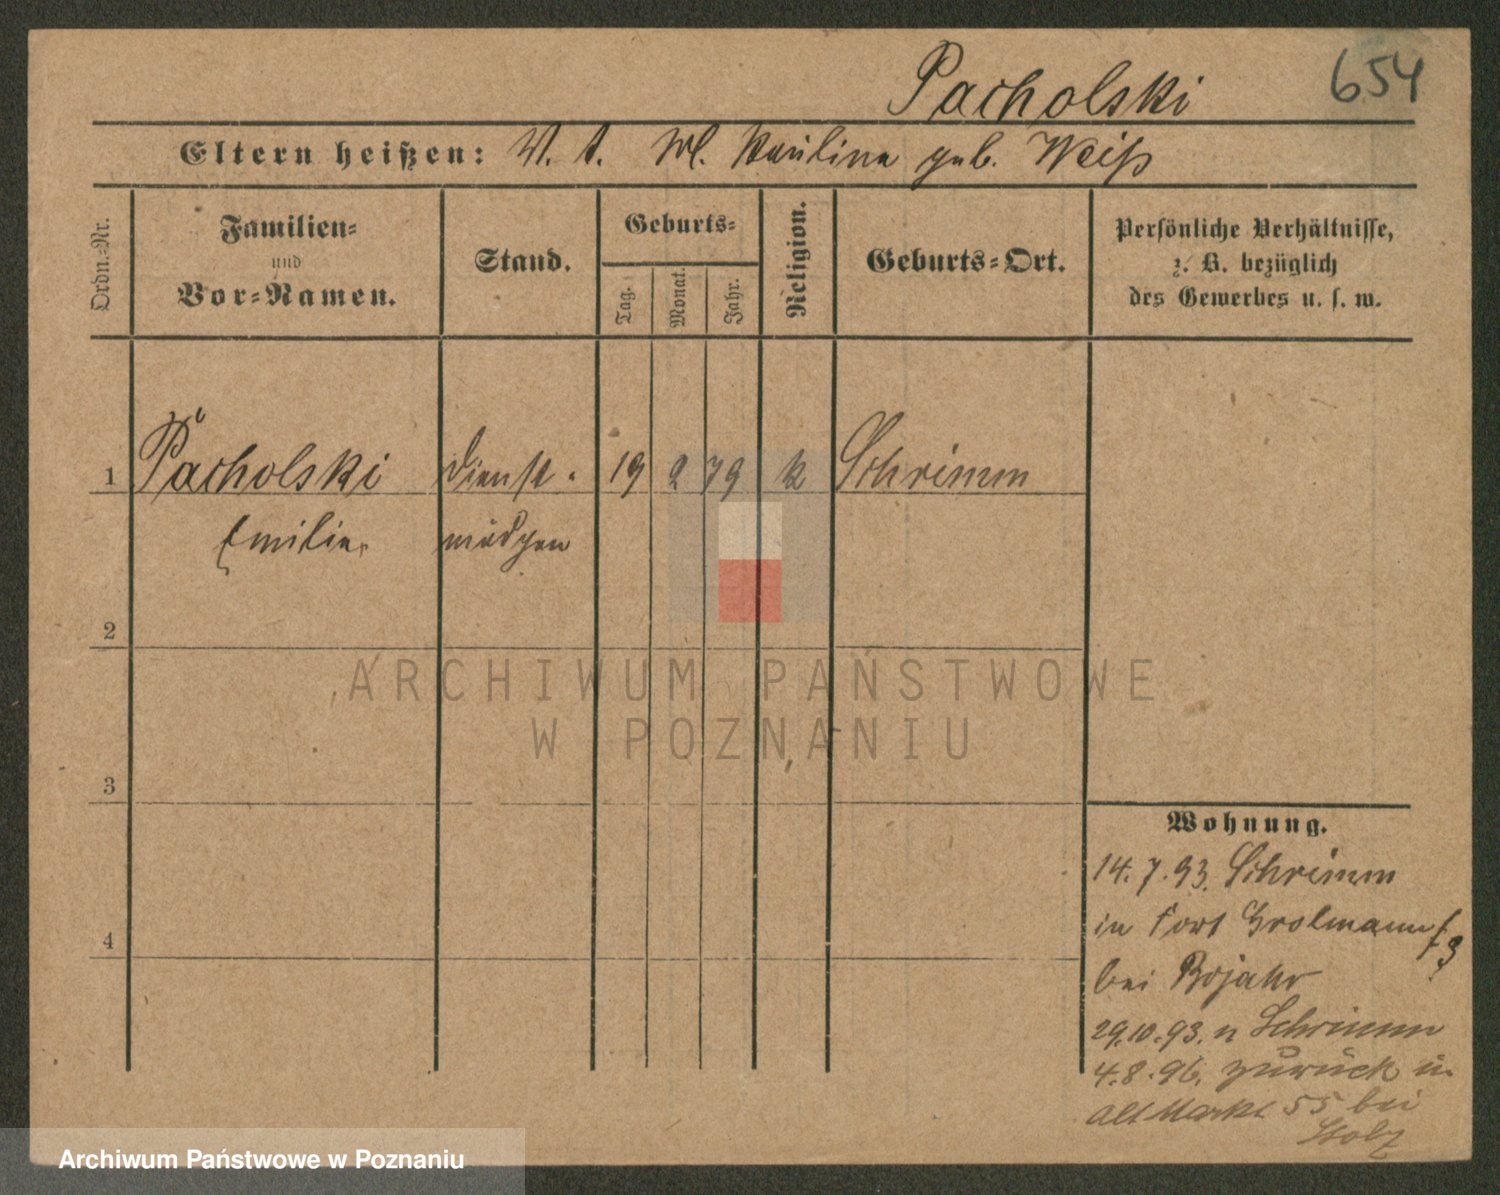 Pacholski
654
Eltern heißen: V. A. M. Paulina geb. Weiß
Ordn.-Nr.
Familien-
und
Vor-Namen.
Stand.
Geburts-
Tag.
Monat.
Jahr.
Religion.
Geburts-Ort.
Persönliche Verhältnisse,
z. B. bezüglich
des Gewerbes u. s. w.
1 Pacholski Dienst- 19 2 79 k Schrimm
Emilie mädchen
2
3
4
Wohnung.
14. 7. 93. Schrimm
in Fort Grolmann
bei Bojahr
29.10.93. n Schrimm
4.8.96. zurück in
Alt Markt 55 bei
Stolz
ARCHIWUM PAŃSTWOWE
W POZNANIU
Archiwum Państwowe w Poznaniu